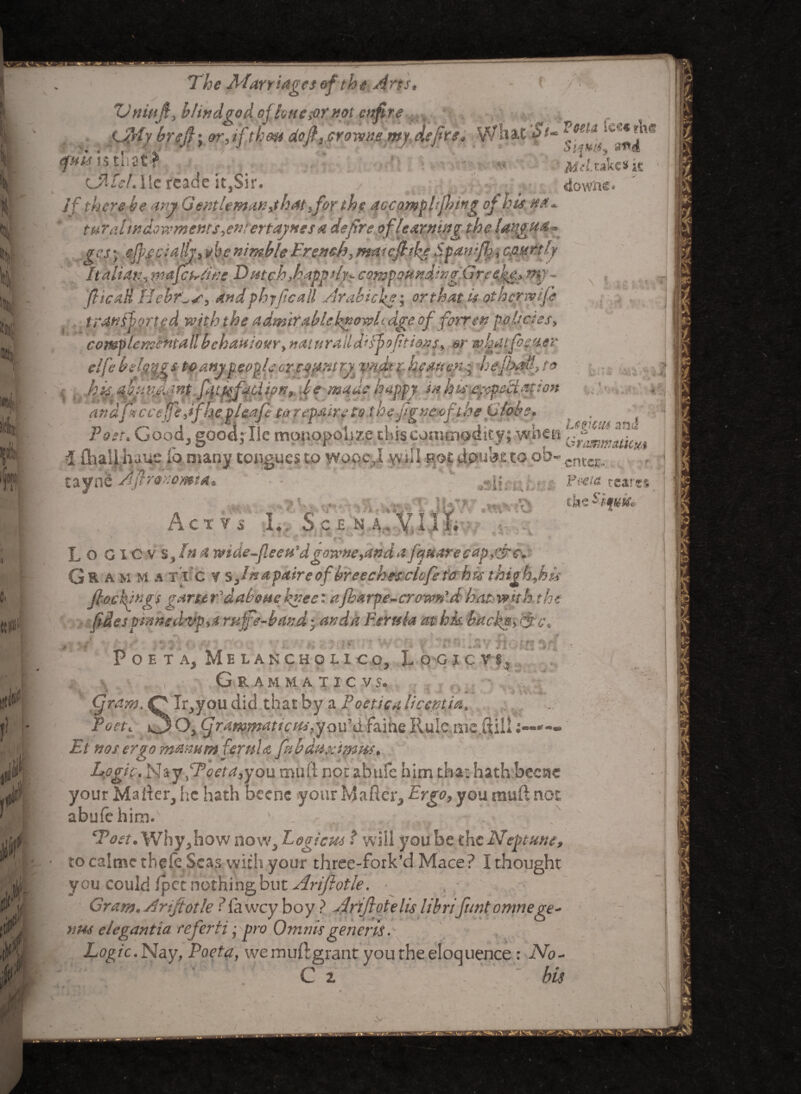 The Marriages of the Arts.
Vniust, blind god of loue, or not enfire
My brest; or, if thou dost, crowne my desire. What Si-
Poeta sees the
Siquis, and
quis is that?
Mel. takes it
Mel. Ile reade it, Sir.
downe.
If there be any Gentleman, that, for the accomplishing of his na-
turall indowments, entertaynes a desire of learning the langua-
ges; especially, the nimble French, maiestike Spanish, courtly
Italian, masculine Dutch, happily-compounding Greeke, my-
sticall Hebrew, and physicall Arabicke; or that is otherwise
transported with the admirable knowledge of forren policies,
complementall behauiour, naturall dispositions, or whatsoeuer
else belongs to any people or country vnder heauen; he shall, to
his abundant satisfaction, be made happy in his expectation
and successe, if he please to repaire to the signe of the Globe.
Poet. Good, good; Ile monopolize this commodity; when
Logicus and
Grammaticus
I shall haue so many tongues to wooe, I will not doubt to ob-
enter.
tayne Astronomia.
Poeta teares
the Siquis.
ACTVS I. SCENA. VIII.
LOGICVS, In a wide-sleeu'd gowne, and a square cap, &c.
GRAMMATICVS, In a paire of breeches close to his thigh, his
stockings garter'd aboue knee: a sharpe-crown'd hat with the
sides pinned vp, a ruffe-band; and a Ferula at his backe, &c.
POETA, MELANCHOLICO, LOGICVS,
GRAMMATICVS.
Gram. SIr, you did that by a Poetica licentia.
Poet. O, Grammaticus, you'd faine Rule me still;----
Et nos ergo manum ferula subduximus.
Logic. Nay, Poeta, you must not abuse him that hath beene
your Master, he hath beene your Master, Ergo, you must not
abuse him.
Poet. Why, how now, Logicus? will you be the Neptune,
to calme these Seas with your three-fork'd Mace? I thought
you could spet nothing but Aristotle.
Gram. Aristotle? sawcy boy? Aristotelis libri sunt omne ge-
nus elegantia referti; pro Omnis generis.
Logic. Nay, Poeta, we must grant you the eloquence: No-
C 2
bis